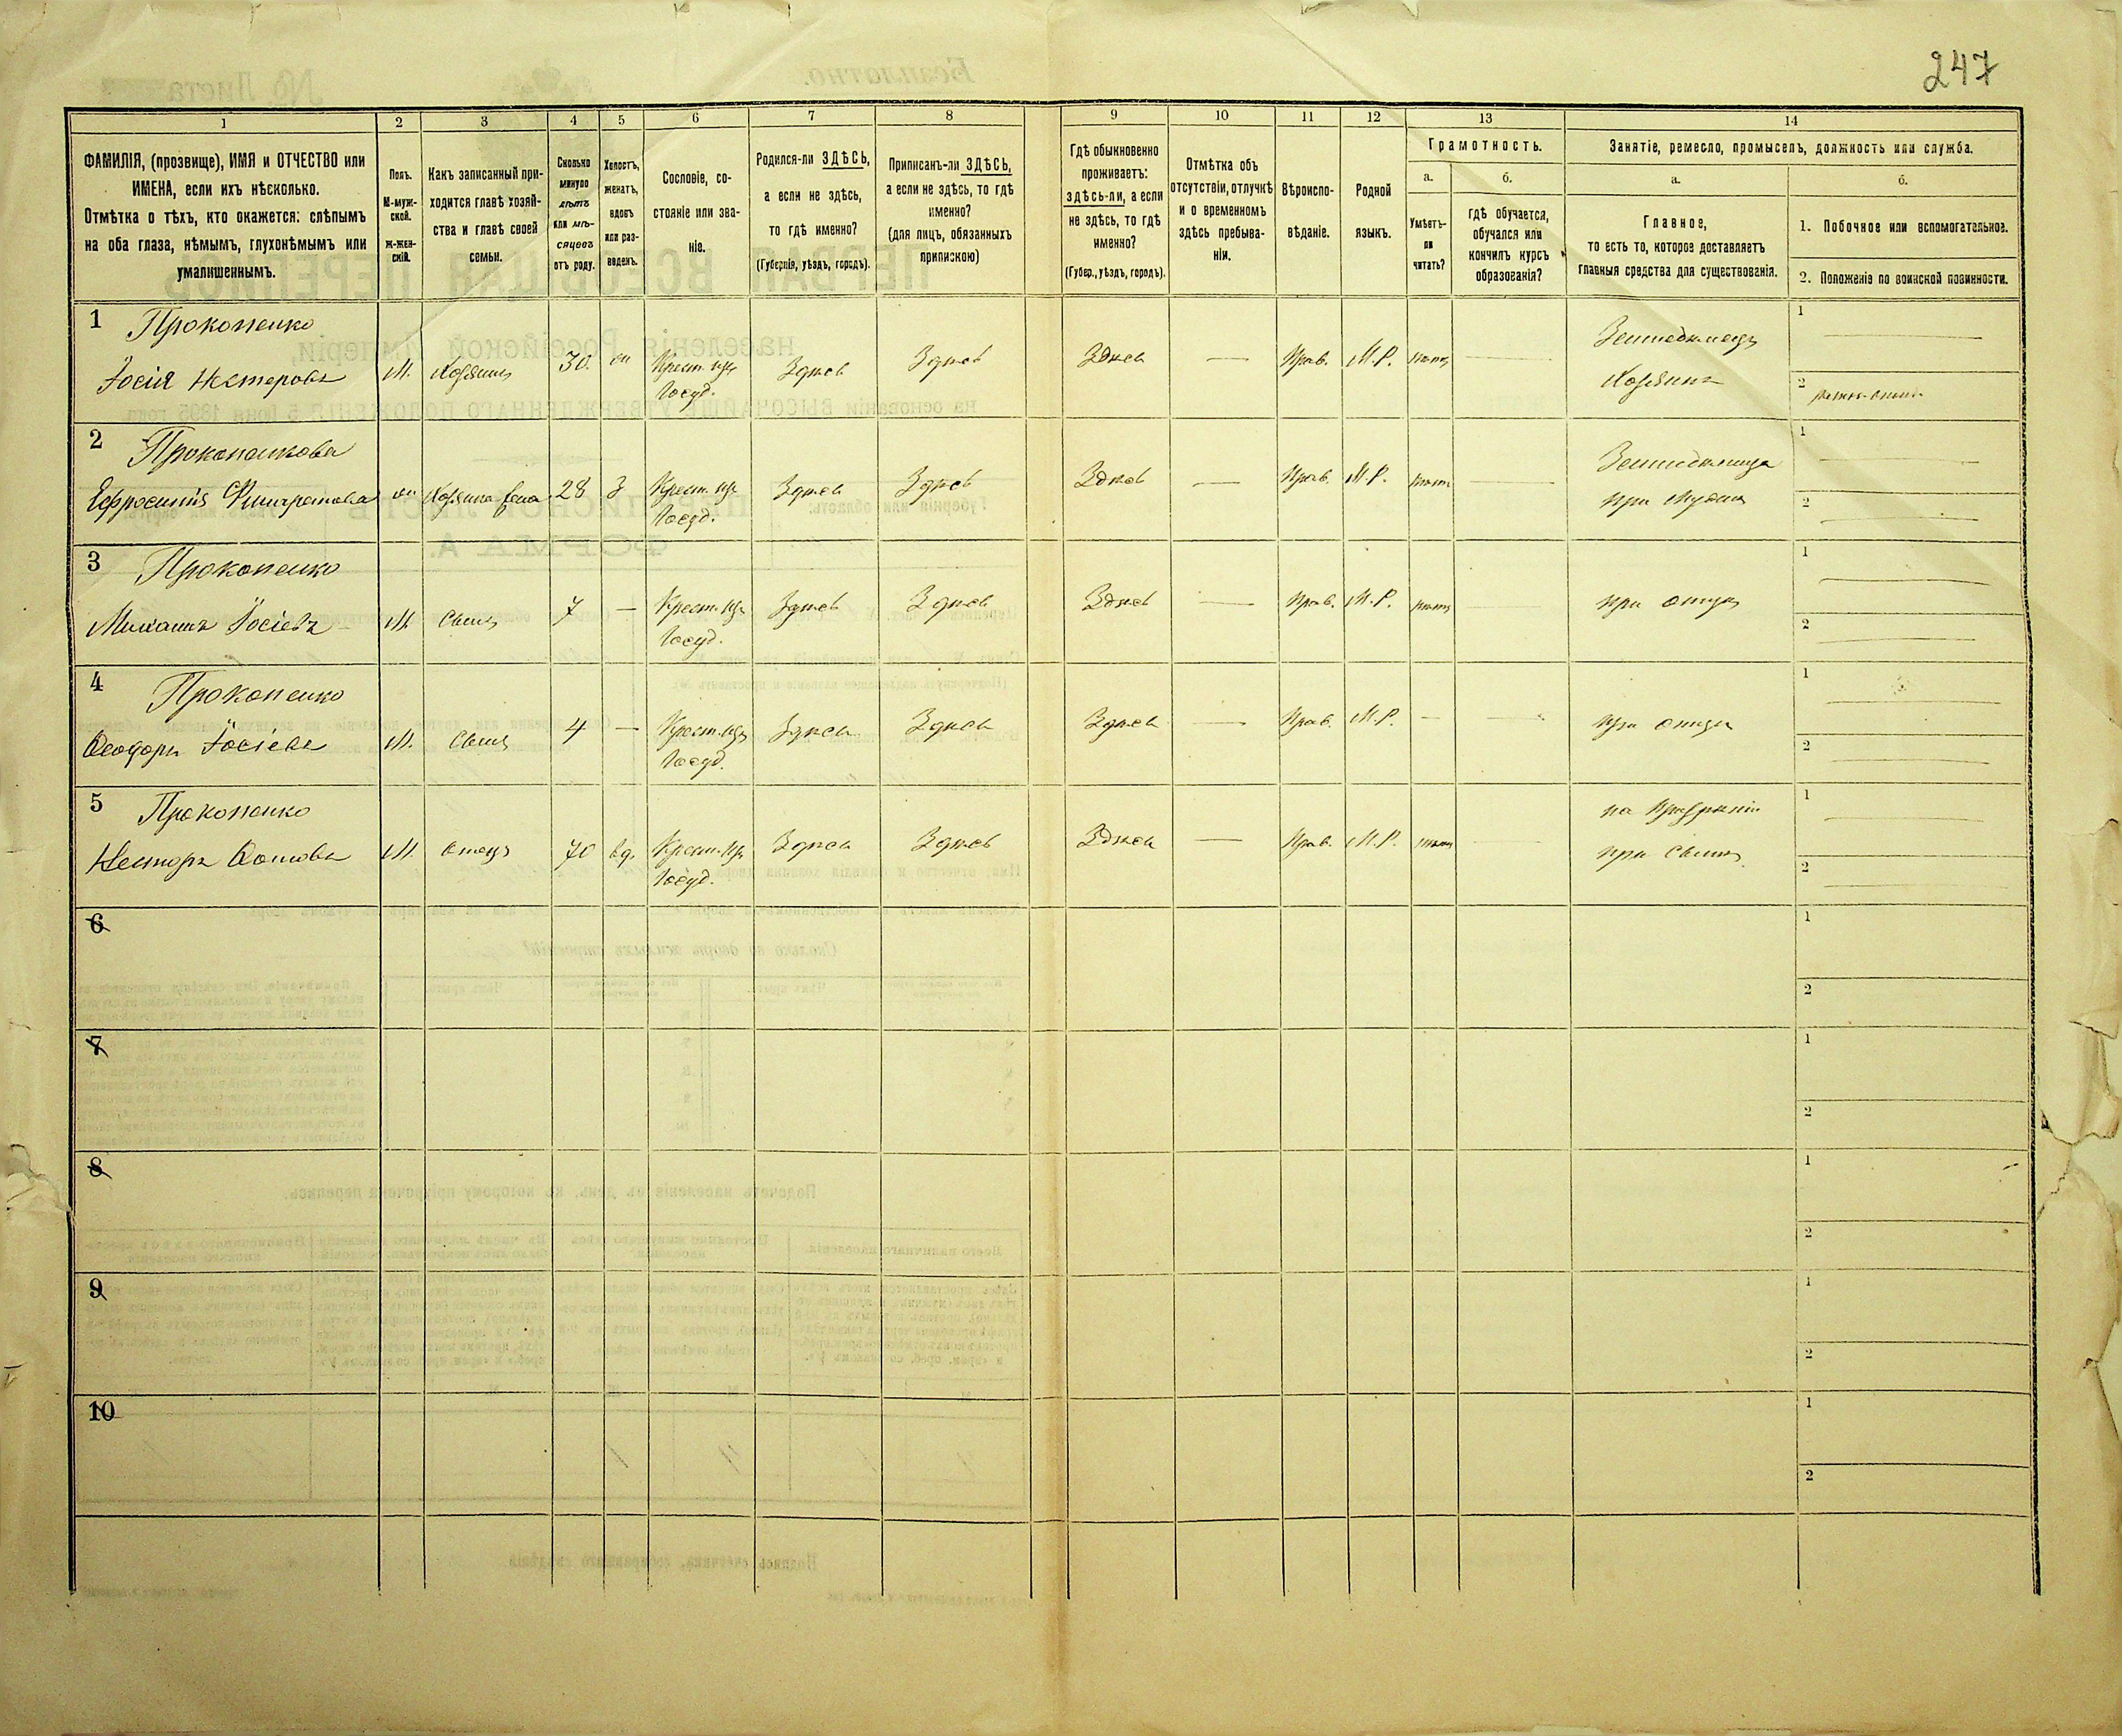 247
1 2 3 4 5 6 7 8 9 10 11 12 13 14
ФАМИЛІЯ, (прозвище), ИМЯ и ОТЧЕСТВО или
ИМЕНА, если ихъ нѣсколько.
Отмѣтка о тѣхъ, кто окажется: слѣпымъ
на оба глаза, нѣмымъ, глухонѣмымъ или
умалишеннымъ.
Полъ.
М-муж-
ской.
Ж-жен-
скій.
Какъ записанный при-
ходится главѣ хозяй-
ства и главѣ своей
семьи.
Сколько
минуло
лѣтъ
или мѣ-
сяцевъ
отъ роду.
Холостъ,
женатъ,
вдовъ
или раз-
веденъ.
Сословіе, со-
стояніе или зва-
ніе.
Родился-ли ЗДѢСЬ,
а если не здѣсь,
то гдѣ именно?
(Губернія, уѣздъ, городъ).
Приписанъ-ли ЗДѢСЬ,
а если не здѣсь, то гдѣ
именно?
(для лицъ, обязанныхъ
припискою)
Гдѣ обыкновенно
проживаетъ:
здѣсь-ли, а если
не здѣсь, то гдѣ
именно?
(Губер., уѣздъ, городъ).
Отмѣтка объ
отсутствіи, отлучкѣ
и о временномъ
здѣсь пребыва-
ніи.
Вѣроиспо-
вѣданіе.
Родной
языкъ.
Грамотность.
а.
Умѣетъ-
ли
читать?
б.
гдѣ обучается,
обучался или
кончилъ курсъ
образованія?
Занятіе, ремесло, промыселъ, должность или служба.
а.
Главное,
то есть то, которое доставляетъ
главныя средства для существованія.
б.
1. Побочное или вспомогательное.
2. Положеніе по воинской повинности.
1 Прокопенко
Іосія Нестеровъ М. Хозяинъ 30. Крест. изъ Здѣсь Здѣсь Здѣсь — Прав. М.Р. нѣтъ —
Госуд.
Земледѣлецъ
Хозяинъ
1 —
2
2 Прокопенкова
Ефросинія Филаретова Хозяина жена 28 З Крест. изъ Здѣсь Здѣсь Здѣсь — Прав. М.Р. нѣтъ —
Госуд.
Земледѣлица
при мужѣ
1 —
2 —
3 Прокопенко
Михаилъ Іосіевъ М Сынъ 7 — Крест. изъ Здѣсь Здѣсь Здѣсь — Прав. М.Р. нѣтъ —
Госуд.
при отцѣ
1 —
2 —
4 Прокопенко
Ѳеодоръ Іосіевъ М. Сынъ 4 — Крест. изъ Здѣсь Здѣсь Здѣсь — Прав. М.Р. — —
Госуд.
при отцѣ
1 —
2 —
5 Прокопенко
Несторъ М. отецъ 70 вд. Крест. изъ Здѣсь Здѣсь Здѣсь — Прав. М.Р. нѣтъ —
Госуд.
на призрѣніи
при сынѣ
1 —
2 —
6
1
2
7
1
2
8
1
2
9
1
2
10
1
2